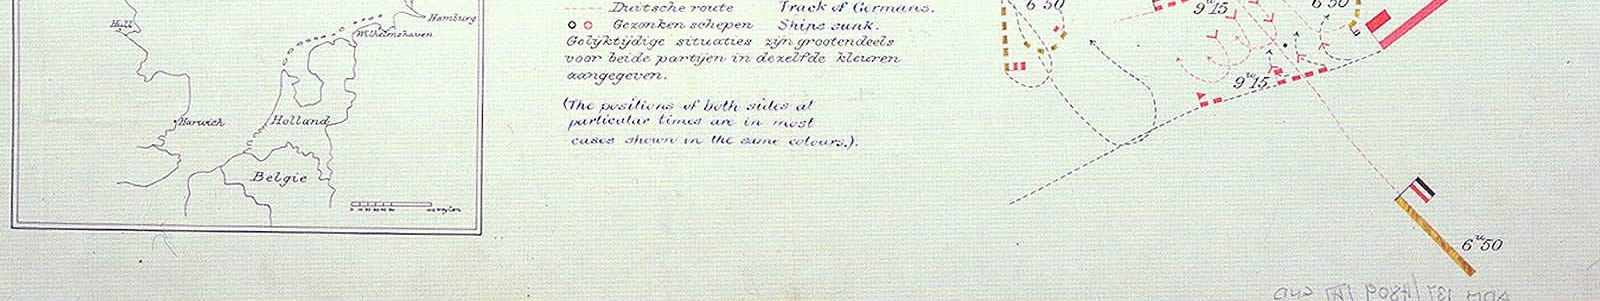 Hull
Hamburg
Wilhelmshaven
Harwich
Holland
Belgie
Duitsche route Track of Germans.
Gezonken schepen Ships sunk.
Gelijktijdige situaties zijn grootendeels
voor beide partijen in dezelfde kleuren
aangegeven.
(The positions of both sides at
particular times are in most
cases shown in the same colours.).
6 50
9u15
6 50
9u15
6u50
ADM 137/4809